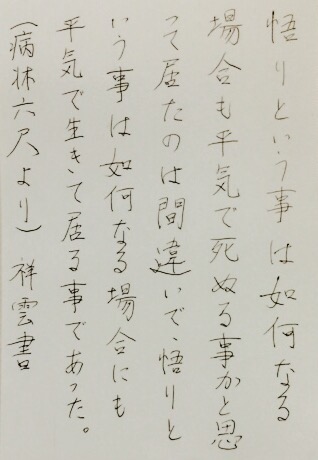 悟りという事は如何なる
場合も平気で死ぬる事かと思
って居たのは間違いで、悟りと
いう事は如何なる場合にも
平気で生きて居る事であった。
(病牀六尺より) 祥雲書